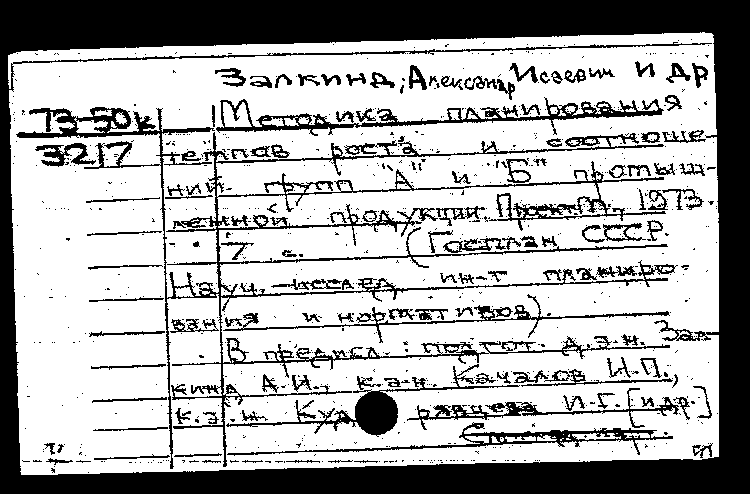 Залкинд, Александр Исаевич и др
73-50к Методика планирования
3217 темпов роста и соотноше-
ний групп "А" и "Б" промыш-
ленной продукции. Проект. М., 1973.
7 с. (Госплан СССР.
Науч.-исслед. ин-т планиро-
вания и нормативов).
В предисл.: подгот. д.э.н. Зал-
кинд А.И., к.э.н. Качалов И.П.,
к.э.н. Кудрявцева И.Г. [и др.]